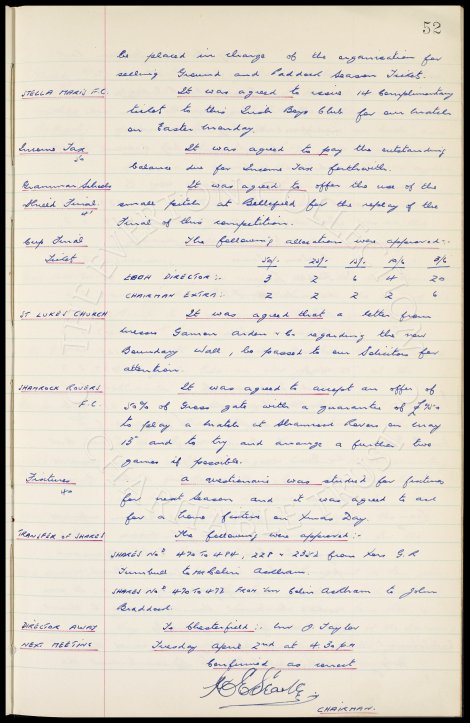 52
be placed in charge of the organisation for
selling Ground and Paddock Season Tickets.
STELLA MARIS F.C. It was agreed to issue 14 Complimentary
tickets to this Irish Boys Club for our match
on Easter Monday.
Income Tax It was agreed to pay the outstanding
balance due for Income Tax forthwith.
Grammar Schools It was agreed to offer the use of the
Shield Final small pitch at Bellefield for the replay of the
Final of this competition.
Cup Final The following allocations were approved:-
Tickets 50/- 25/- 15/- 10/6
EACH DIRECTOR:- 3 2 6 4 20
CHAIRMAN EXTRA:- 2 2 2 2 6
ST LUKES CHURCH It was agreed that a letter from
Messrs Gamon Arden & Co regarding the new
Boundary Wall, be passed to our Solicitors for
attention.
SHAMROCK ROVERS It was agreed to accept an offer of
F.C 50% of Gross gate with a guarantee of £750
to play a match at Shamrock Rovers on May
13th and to try and arrange a further two
games if possible.
Fixtures A questionaire was studied for fixtures
for next season and it was agreed to ask
for a home fixture on Xmas Day.
TRANSFER OF SHARES The following were approved:-
SHARES Nos 470 TO 484, 228 & 2352 from Exrs G. R
Turnbull to Mr Colin Askham.
SHARES Nos 470 TO 472 FROM Mr Colin Askham to John
Braddock.
DIRECTOR AWAY To Chesterfield:- Mr O. Taylor
NEXT MEETING Tuesday April 2nd at 4.30pm
Confirmed as correct
CHAIRMAN.